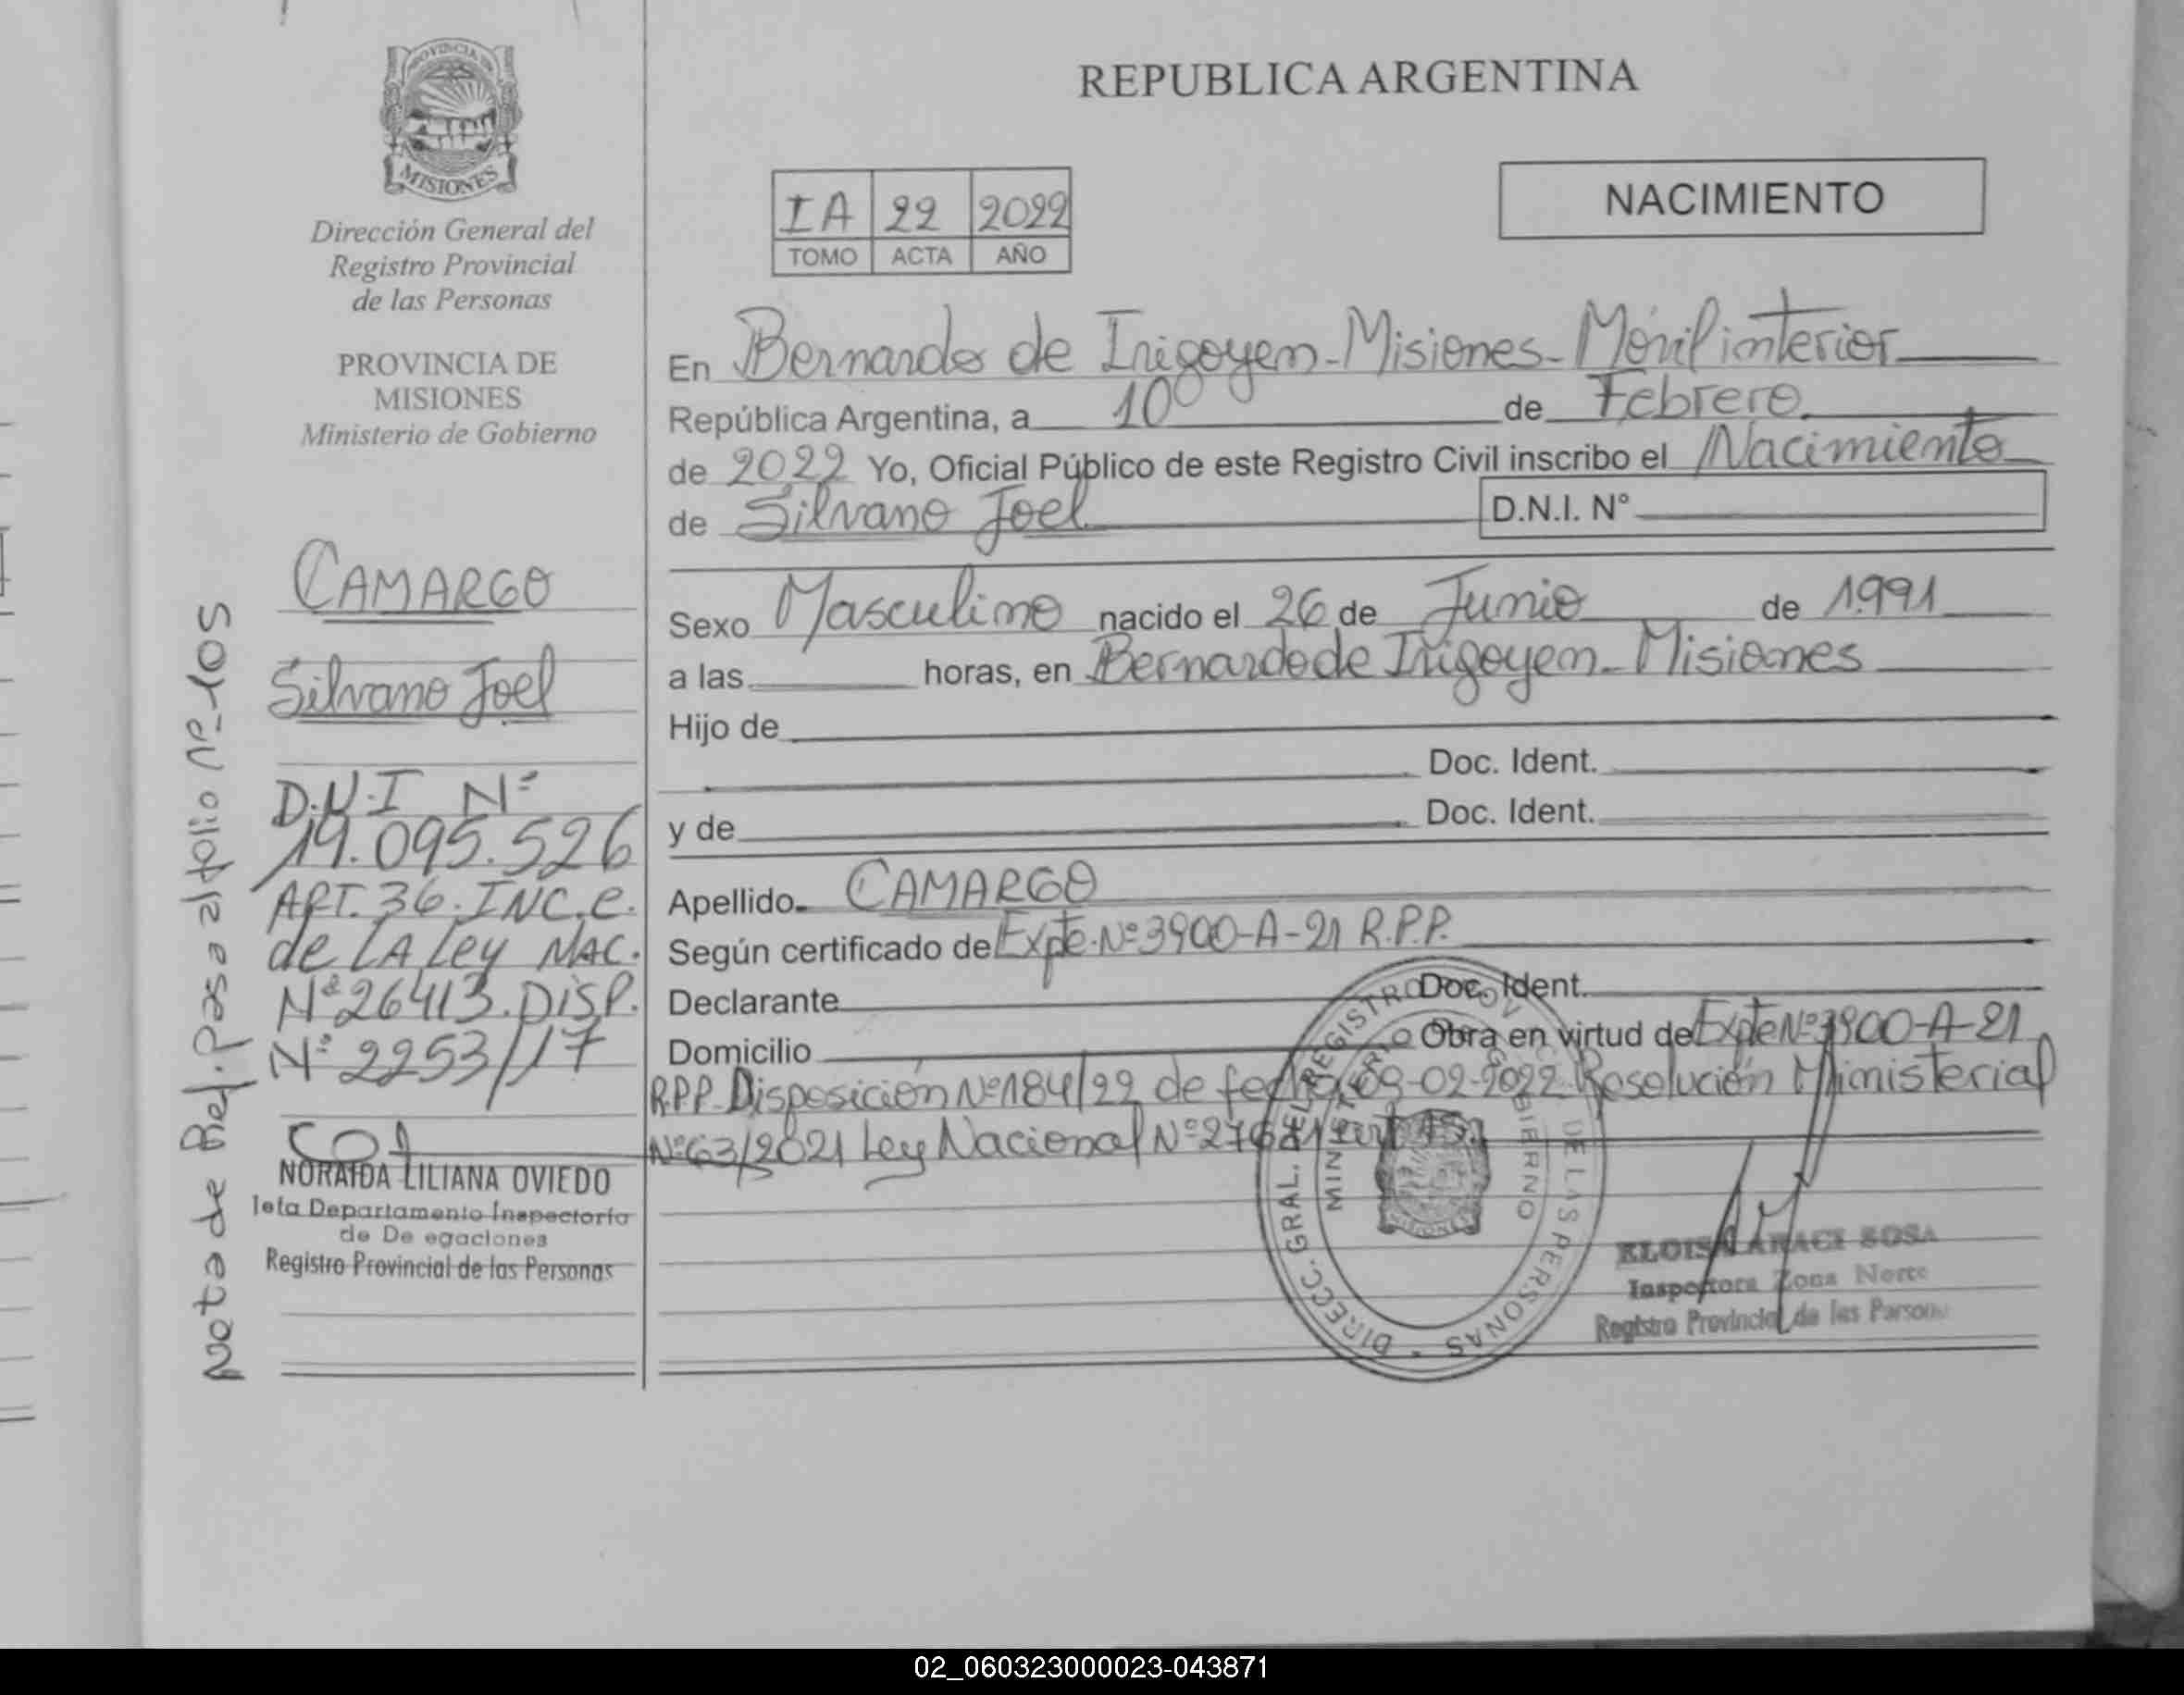 PROVINCIA DE
MISIONES
Dirección General del
Registro Provincial
de las Personas
PROVINCIA DE
MISIONES
Ministerio de Gobierno
CAMARGO
Silvano Joel
D.N.I Nº
ART. 36. INC. e.
de LA Ley NAC.
Nº 26413. DISP.
Nº 2253/17
NORAIDA LILIANA OVIEDO
Departamento Inspectoría
de De egaciones
Registro Provincial de las Personas
Nota de Ref. Pasa al folio nº 105
REPUBLICA ARGENTINA
IA 22 2022
TOMO ACTA AÑO
NACIMIENTO
En Bernardo de Irigoyen-Misiones-Móvil interior
República Argentina, a 10 de Febrero
de 2022 Yo, Oficial Público de este Registro Civil inscribo el Nacimiento
de Silvano Joel D.N.I. N°
Sexo Masculino nacido el 26 de Junio de 1991
a las horas, en Bernardo de Irigoyen-Misiones
Hijo de
Doc. Ident.
y de Doc. Ident.
Apellido CAMARGO
Según certificado de Expte. Nº 3900-A-21 R.P.P.
Declarante Doc. Ident.
Domicilio Obra en virtud de Expte Nº 3900-A-21
R.P.P. Disposición Nº 184/22 de fecha 09-02-2022 Resolución Ministerial
Nº 63/2021 Ley Nacional Nº
DIRECC. GRAL. DEL REGISTRO DE LAS PERSONAS
ELOISA ARACI SOSA
Inspectora Zona Norte
Registro Provincial de las Personas
02_060323000023-043871